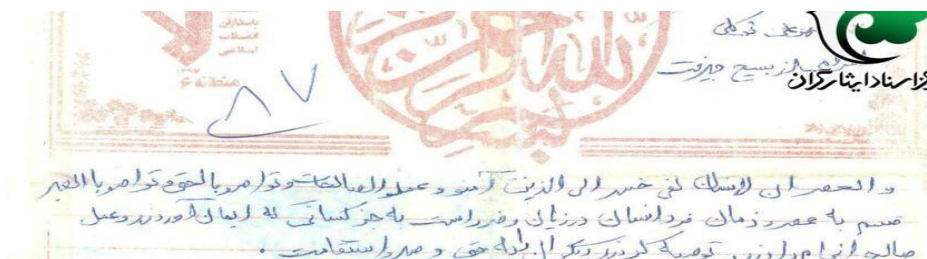 پاسداران
انقلاب
اسلامی
منطقه ۶
۸۷
علی توکلی
بسیج جیرفت
مرکز اسناد ایثارگران
بسم الله الرحمن
و العصر ان الانسان لفی خسر الی الذین آمنو و عملو الصالحات و تواصو بالحق و تواصو با الصبر
قسم به عصر و زمان فرد انسان در زیان و ضرر است به جز کسانی که ایمان آوردند و عمل
صالح انجام دادند توصیه کردند دیگران را به حق و صبر و استقامت .